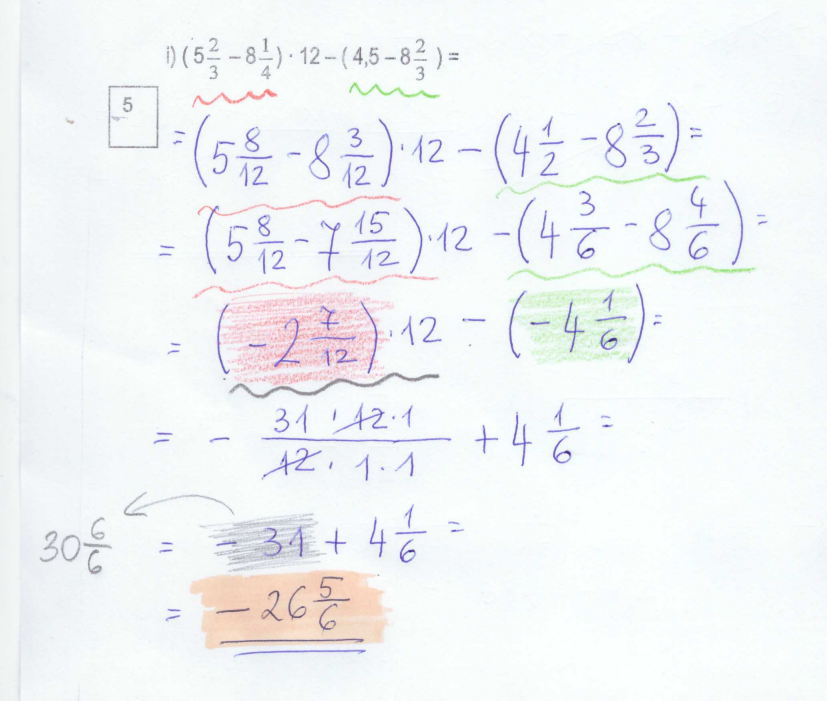 i) (5 2/3 − 8 1/4) · 12 − (4,5 − 8 2/3) =
5
= (5 8/12 − 8 3/12) · 12 − (4 1/2 − 8 2/3) =
= (5 8/12 − 7 15/12) · 12 − (4 3/6 − 8 4/6) =
= (− 2 7/12) · 12 − (− 4 1/6) =
= − (31 · 12 · 1)/(12 · 1 · 1) + 4 1/6 =
30 6/6 = − 31 + 4 1/6 =
= − 26 5/6